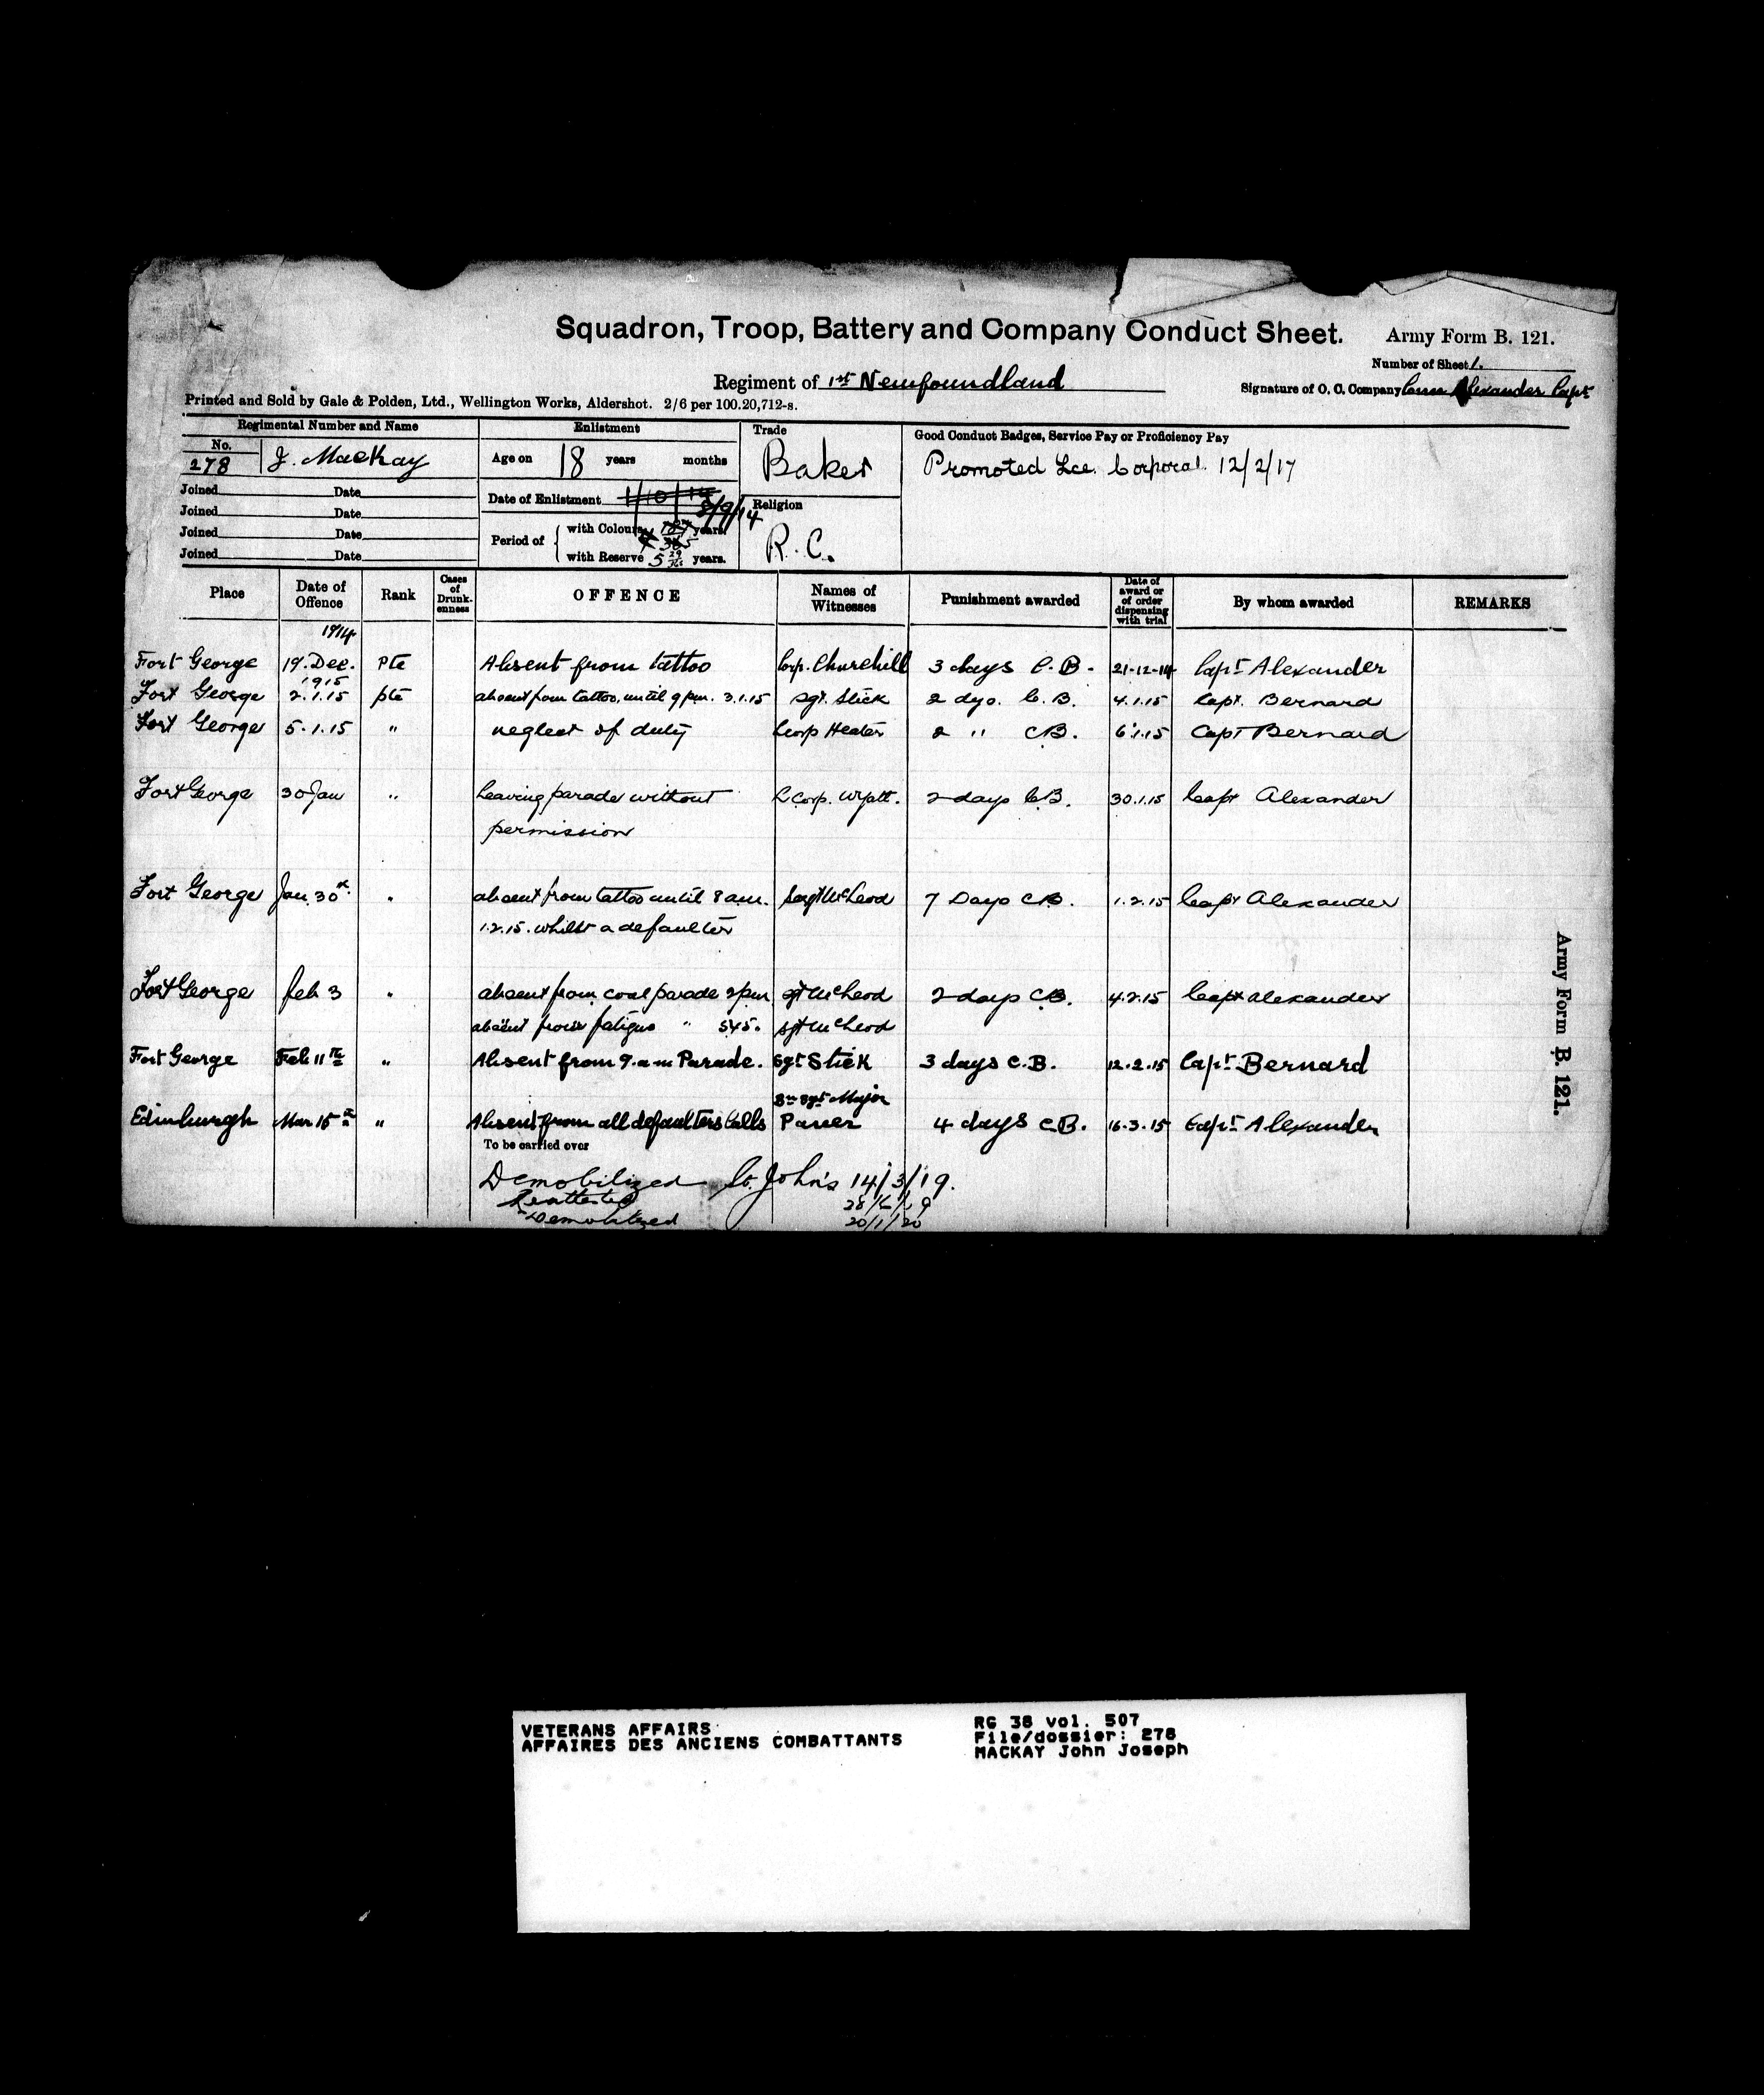 Squadron, Troop, Battery and Company Conduct Sheet. Army Form B. 121.
Number of Sheet 1.
Regiment of 1st Newfoundland
Signature of O. C. Company Alexander Capt
Printed and Sold by Gale & Polden, Ltd., Wellington Works, Aldershot. 2/6 per 100.20,712-s.
Regimental Number and Name Enlistment Trade Good Conduct Badges, Service Pay or Proficiency Pay
No. 278 J. MacKay Age on 18 years months Baker Promoted Lce. Corporal 12/2/17
Joined Date
Joined Date
Joined Date
Joined Date
Date of Enlistment 1/10/14 8/9/14 Religion
Period of with Colours years.
with Reserve 5 29/365 years. R.C.
Place Date of Offence Rank Cases of Drunkenness OFFENCE Names of Witnesses Punishment awarded Date of award or of order dispensing with trial By whom awarded REMARKS
1914
Fort George 19. Dec. Pte Absent from tattoo Corp. Churchill 3 days C.B. 21-12-14 Capt Alexander
1915
Fort George 2.1.15 pte absent from tattoo, until 9 pm. 3.1.15 Sgt. Stick 2 dys. C.B. 4.1.15 Capt. Bernard
Fort George 5.1.15 " neglect of duty Lcorp Heater 2 " CB. 6.1.15 Capt Bernard
Fort George 30 Jan " Leaving parade without L Corp. Wyatt. 2 days CB. 30.1.15 Capt Alexander
permission
Fort George Jan 30th. " absent from tattoo until 8 am. Sergt McLeod 7 Days CB. 1.2.15 Capt Alexander
1.2.15. whilst a defaulter
Fort George Feb 3 " absent from coal parade 2pm Sgt McLeod 2 days CB. 4.2.15 Capt Alexander
absent from fatigue " 545. Sgt McLeod
Fort George Feb 11th " Absent from 9.a.m Parade. Sgt Stick 3 days C.B. 12.2.15 Capt Bernard
Sgt Major
Edinburgh Mar 15th " Absent from all defaulters Calls 4 days CB. 16.3.15 Capt Alexander
To be carried over
Demobilized St. John's 14/3/19.
Reattested
Demobilized 20/1/20
Army Form B. 121.
VETERANS AFFAIRS
AFFAIRES DES ANCIENS COMBATTANTS
RG 38 vol. 507
File/dossier: 278
MACKAY John Joseph